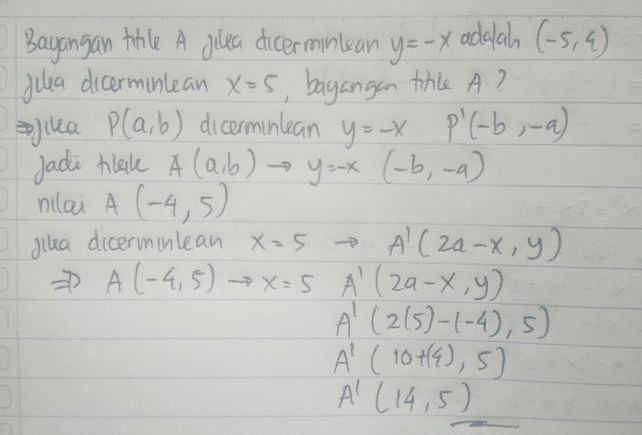 Bayangan titik A jika dicerminkan y=-x adalah (-5,4)
jika dicerminkan x=5, bayangan titik A?
⇒jika P(a,b) dicerminkan y=-x P'(-b,-a)
Jadi titik A (a,b) → y=-x (-b,-a)
nilai A (-4,5)
Jika dicerminkan x=5 → A'(2a-x,y)
⇒ A(-4,5) → x=5 A'(2a-x,y)
A' (2(5)-(-4),5)
A' (10+(4),5)
A' (14,5)